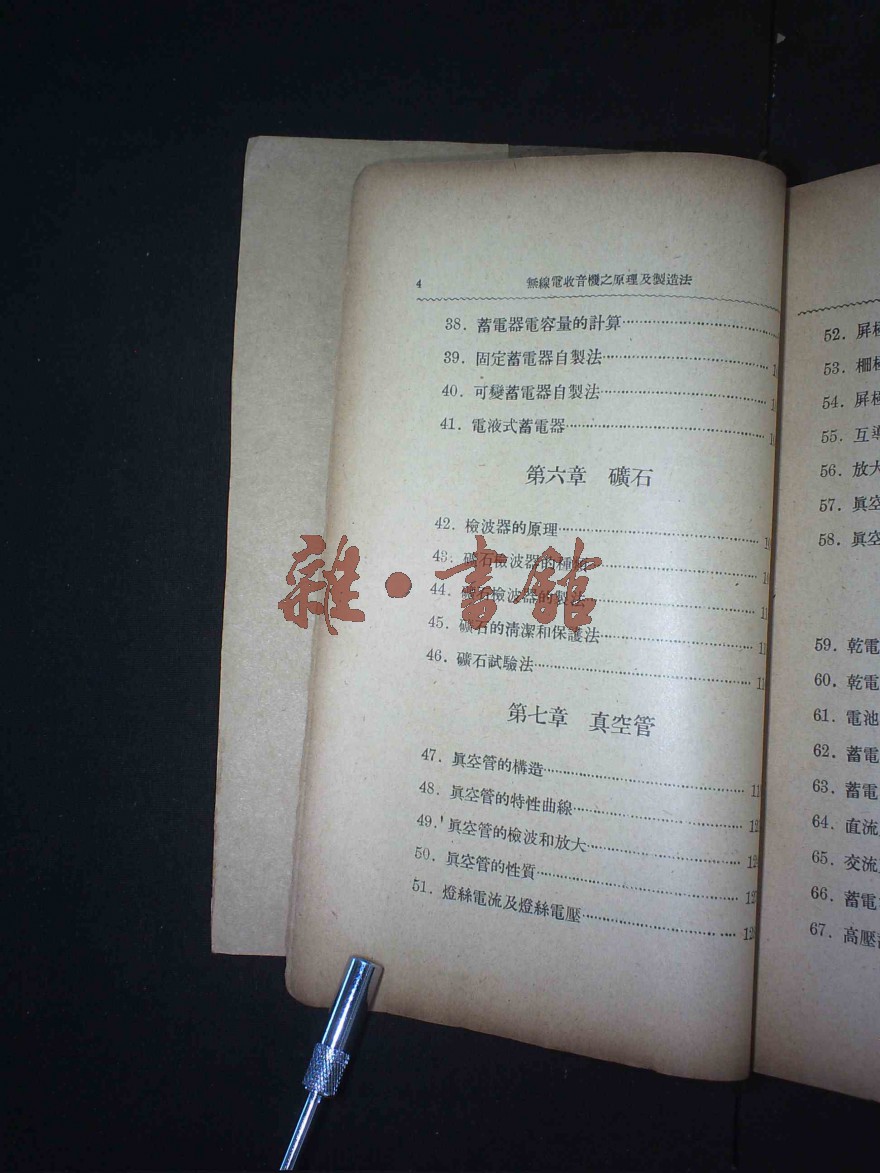 4 無線電收音機之原理及製造法
38. 蓄電器電容量的計算
39. 固定蓄電器自製法
40. 可變蓄電器自製法
41. 電液式蓄電器
第六章 礦石
42. 檢波器的原理
43. 礦石檢波器的種類
44. 礦石檢波器的製法
45. 礦石的清潔和保護法
46. 礦石試驗法
第七章 真空管
47. 眞空管的構造
48. 眞空管的特性曲線
49. 眞空管的檢波和放大
50. 眞空管的性質
51. 燈絲電流及燈絲電壓
雜·書館
52. 屏極
53. 柵極
54. 屏極
55. 互導
56. 放大
57. 眞空
58. 眞空
59. 乾電
60. 乾電
61. 電池
62. 蓄電
63. 蓄電
64. 直流
65. 交流
66. 蓄電
67. 高壓